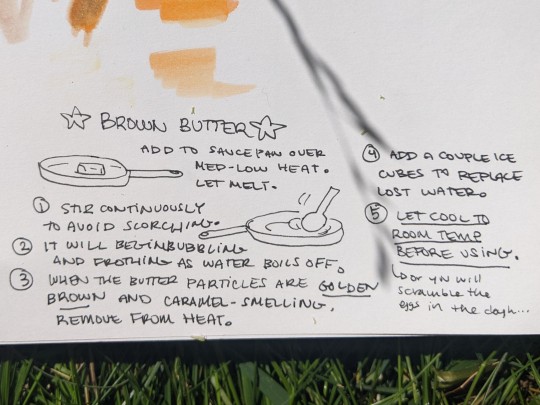 BROWN BUTTER
ADD TO SAUCEPAN OVER
MED-LOW HEAT.
LET MELT.
① STIR CONTINUOUSLY
TO AVOID SCORCHING.
② IT WILL BEGIN BUBBLING
AND FROTHING AS WATER BOILS OFF.
③ WHEN THE BUTTER PARTICLES ARE GOLDEN
BROWN AND CARAMEL-SMELLING,
REMOVE FROM HEAT.
④ ADD A COUPLE ICE
CUBES TO REPLACE
LOST WATER.
⑤ LET COOL TO
ROOM TEMP
BEFORE USING.
↳ or yn will
scramble the
eggs in the dough...